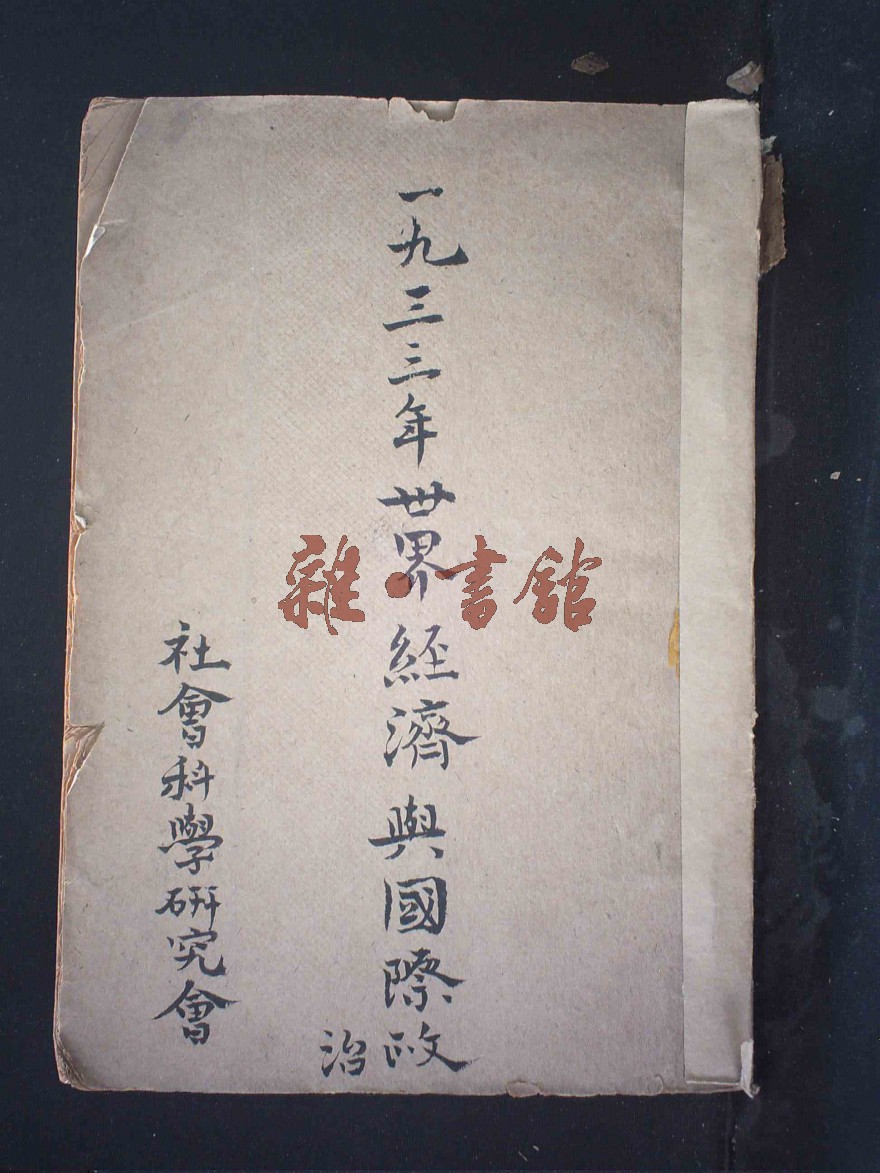 一九三三年世界經濟與國際政治
社會科學研究會
雜·書館